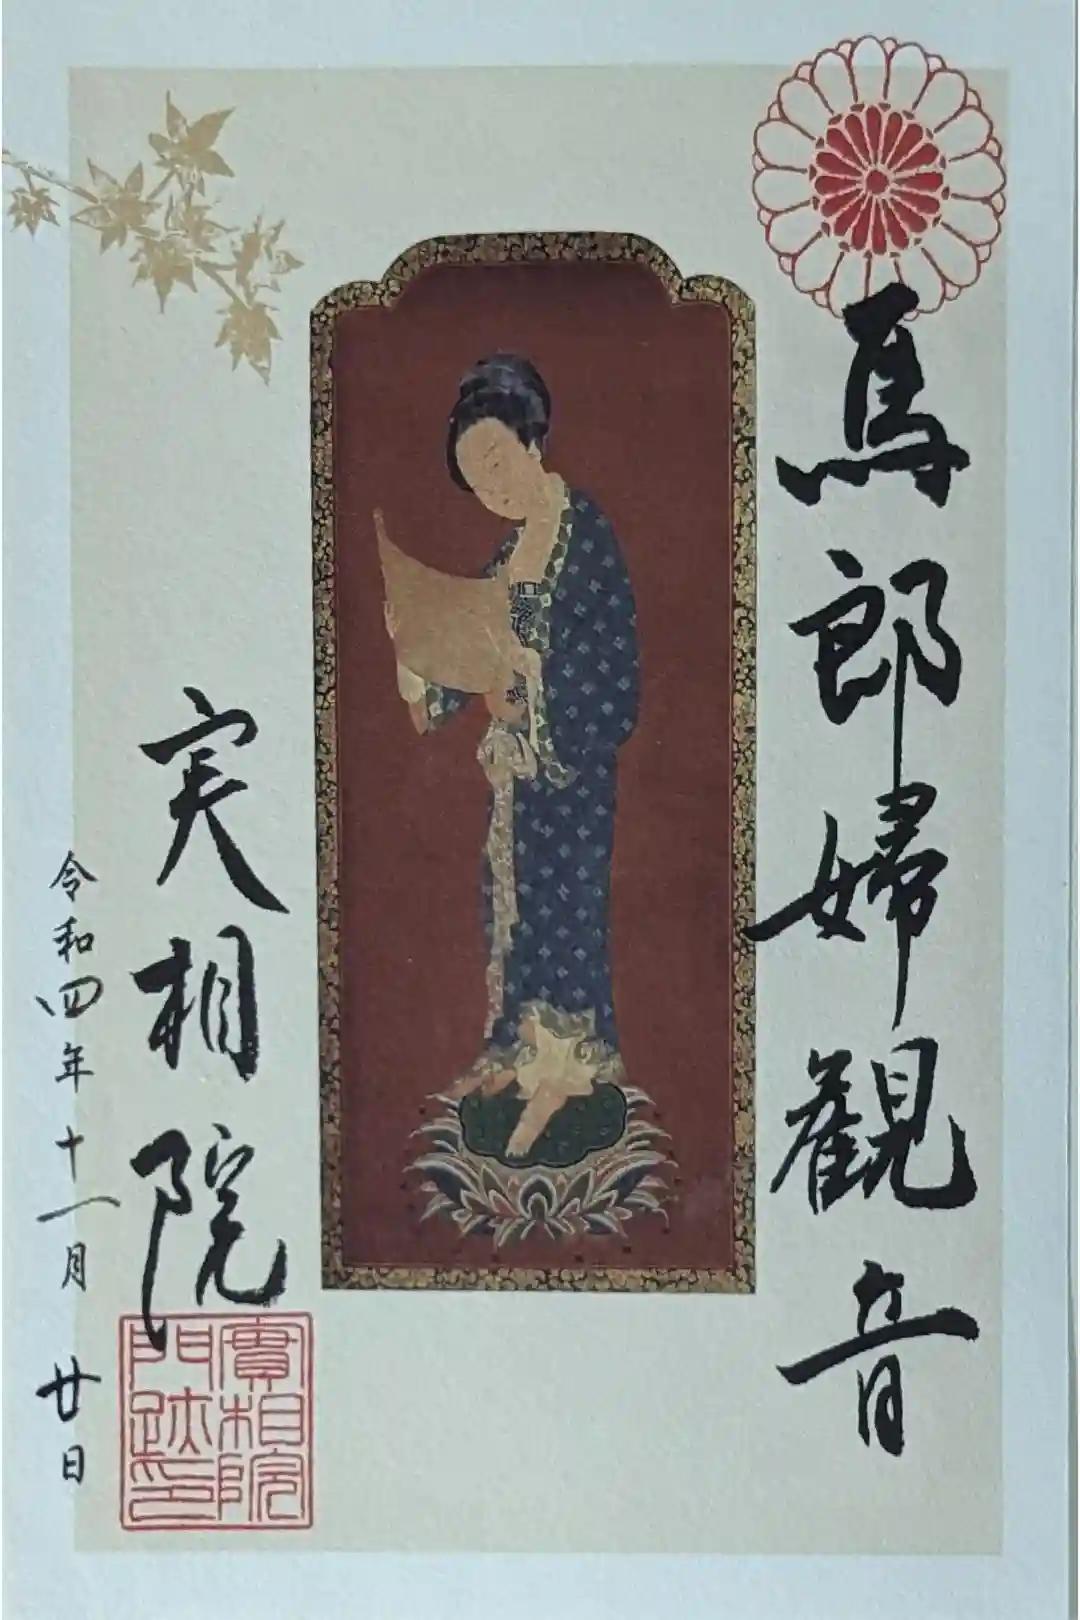 馬郎婦觀音
実相院
令和四年十一月廿日
實相院
門跡印